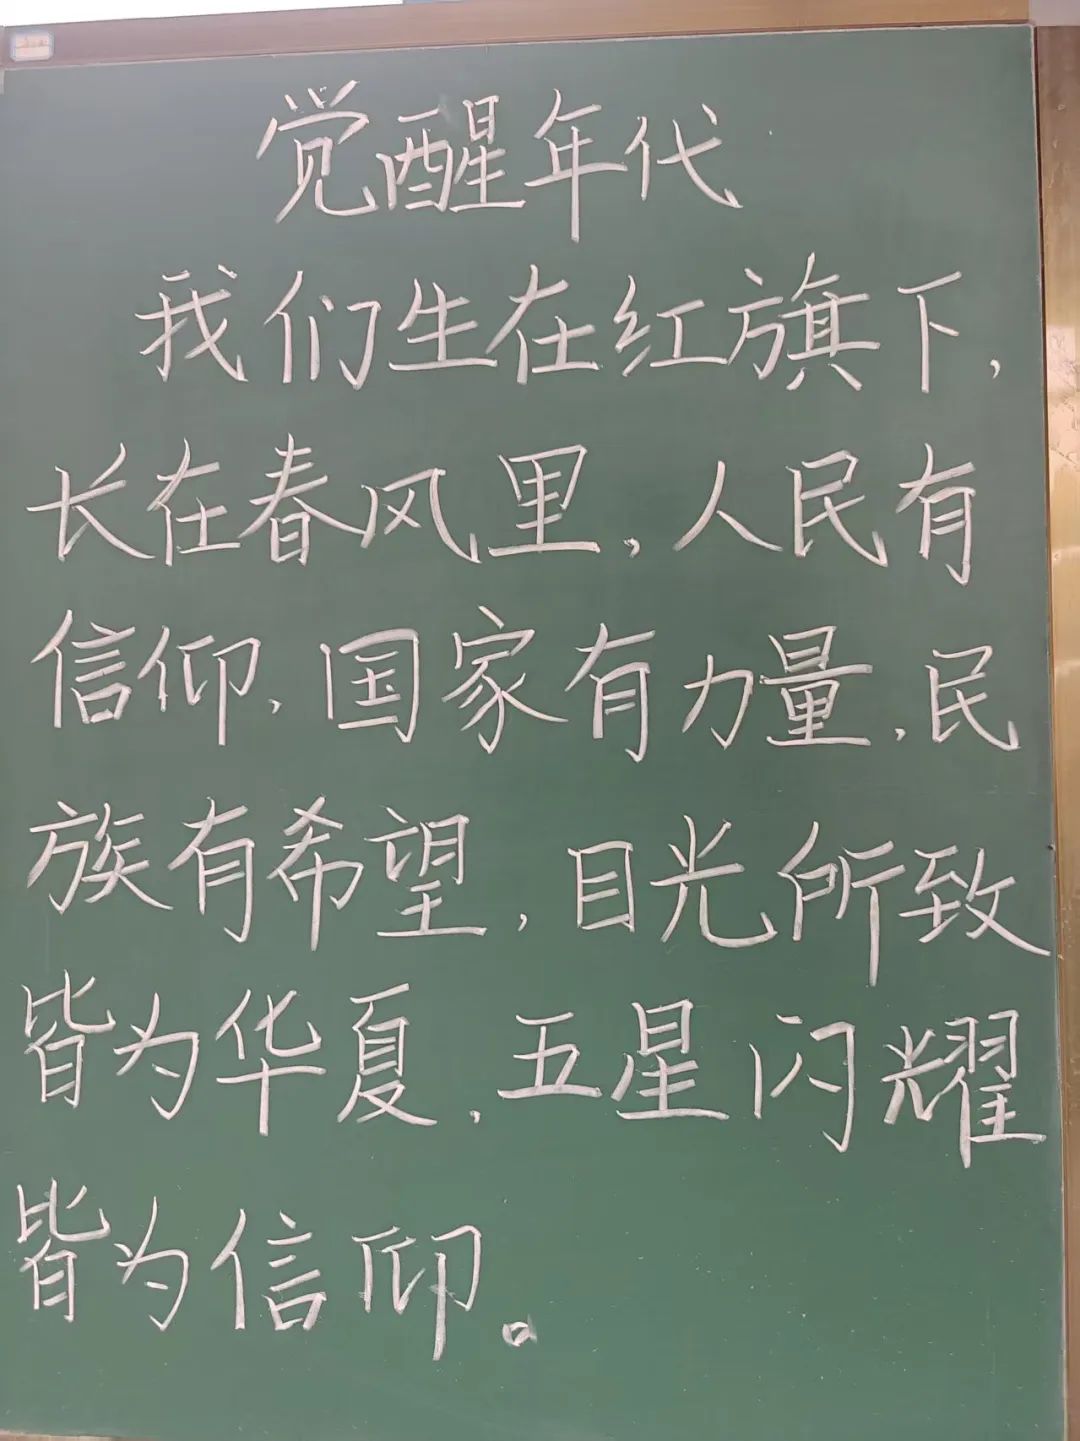 觉醒年代
我们生在红旗下,
长在春风里,人民有
信仰,国家有力量,民
族有希望,目光所致
皆为华夏,五星闪耀
皆为信仰。